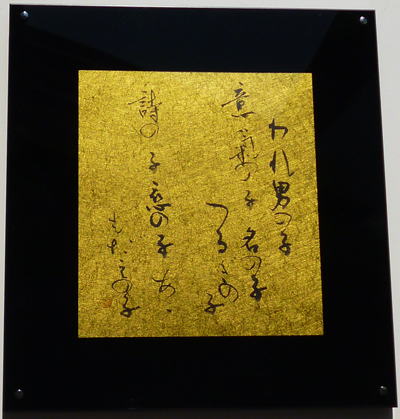 われ男の子
意気の子名の子
つるぎの子
詩の子恋の子あゝ
もだえの子